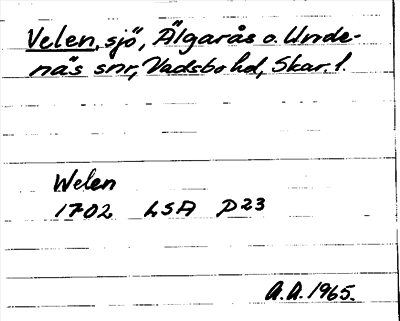 Velen, sjö, Älgarås o. Unde-
näs snr, Vadsbo hd, Skar. l.
Welen
1702 LSA P23
A.A. 1965.